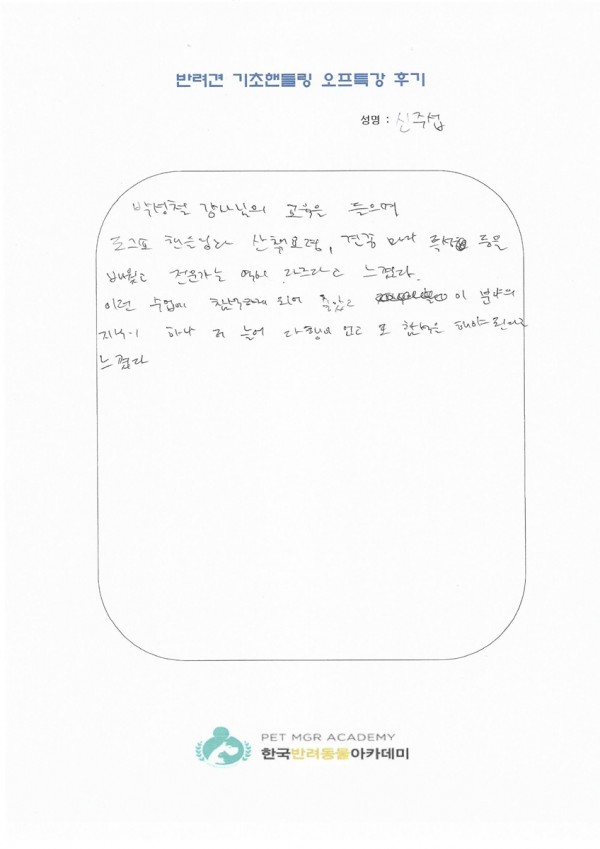 반려견 기초핸들링 오프특강 후기
성명 : 신주섭
박성철 강사님의 교육을 들으며
도그쇼 핸들링과 산책요령, 견종 마다 특성 등을
배웠고 전문가는 역시 다르다고 느꼈다.
이런 수업에 참여하게 되어 좋았고 이 분야의
지식이 하나 더 늘어 다행이
느꼈다
PET MGR ACADEMY
한국반려동물아카데미